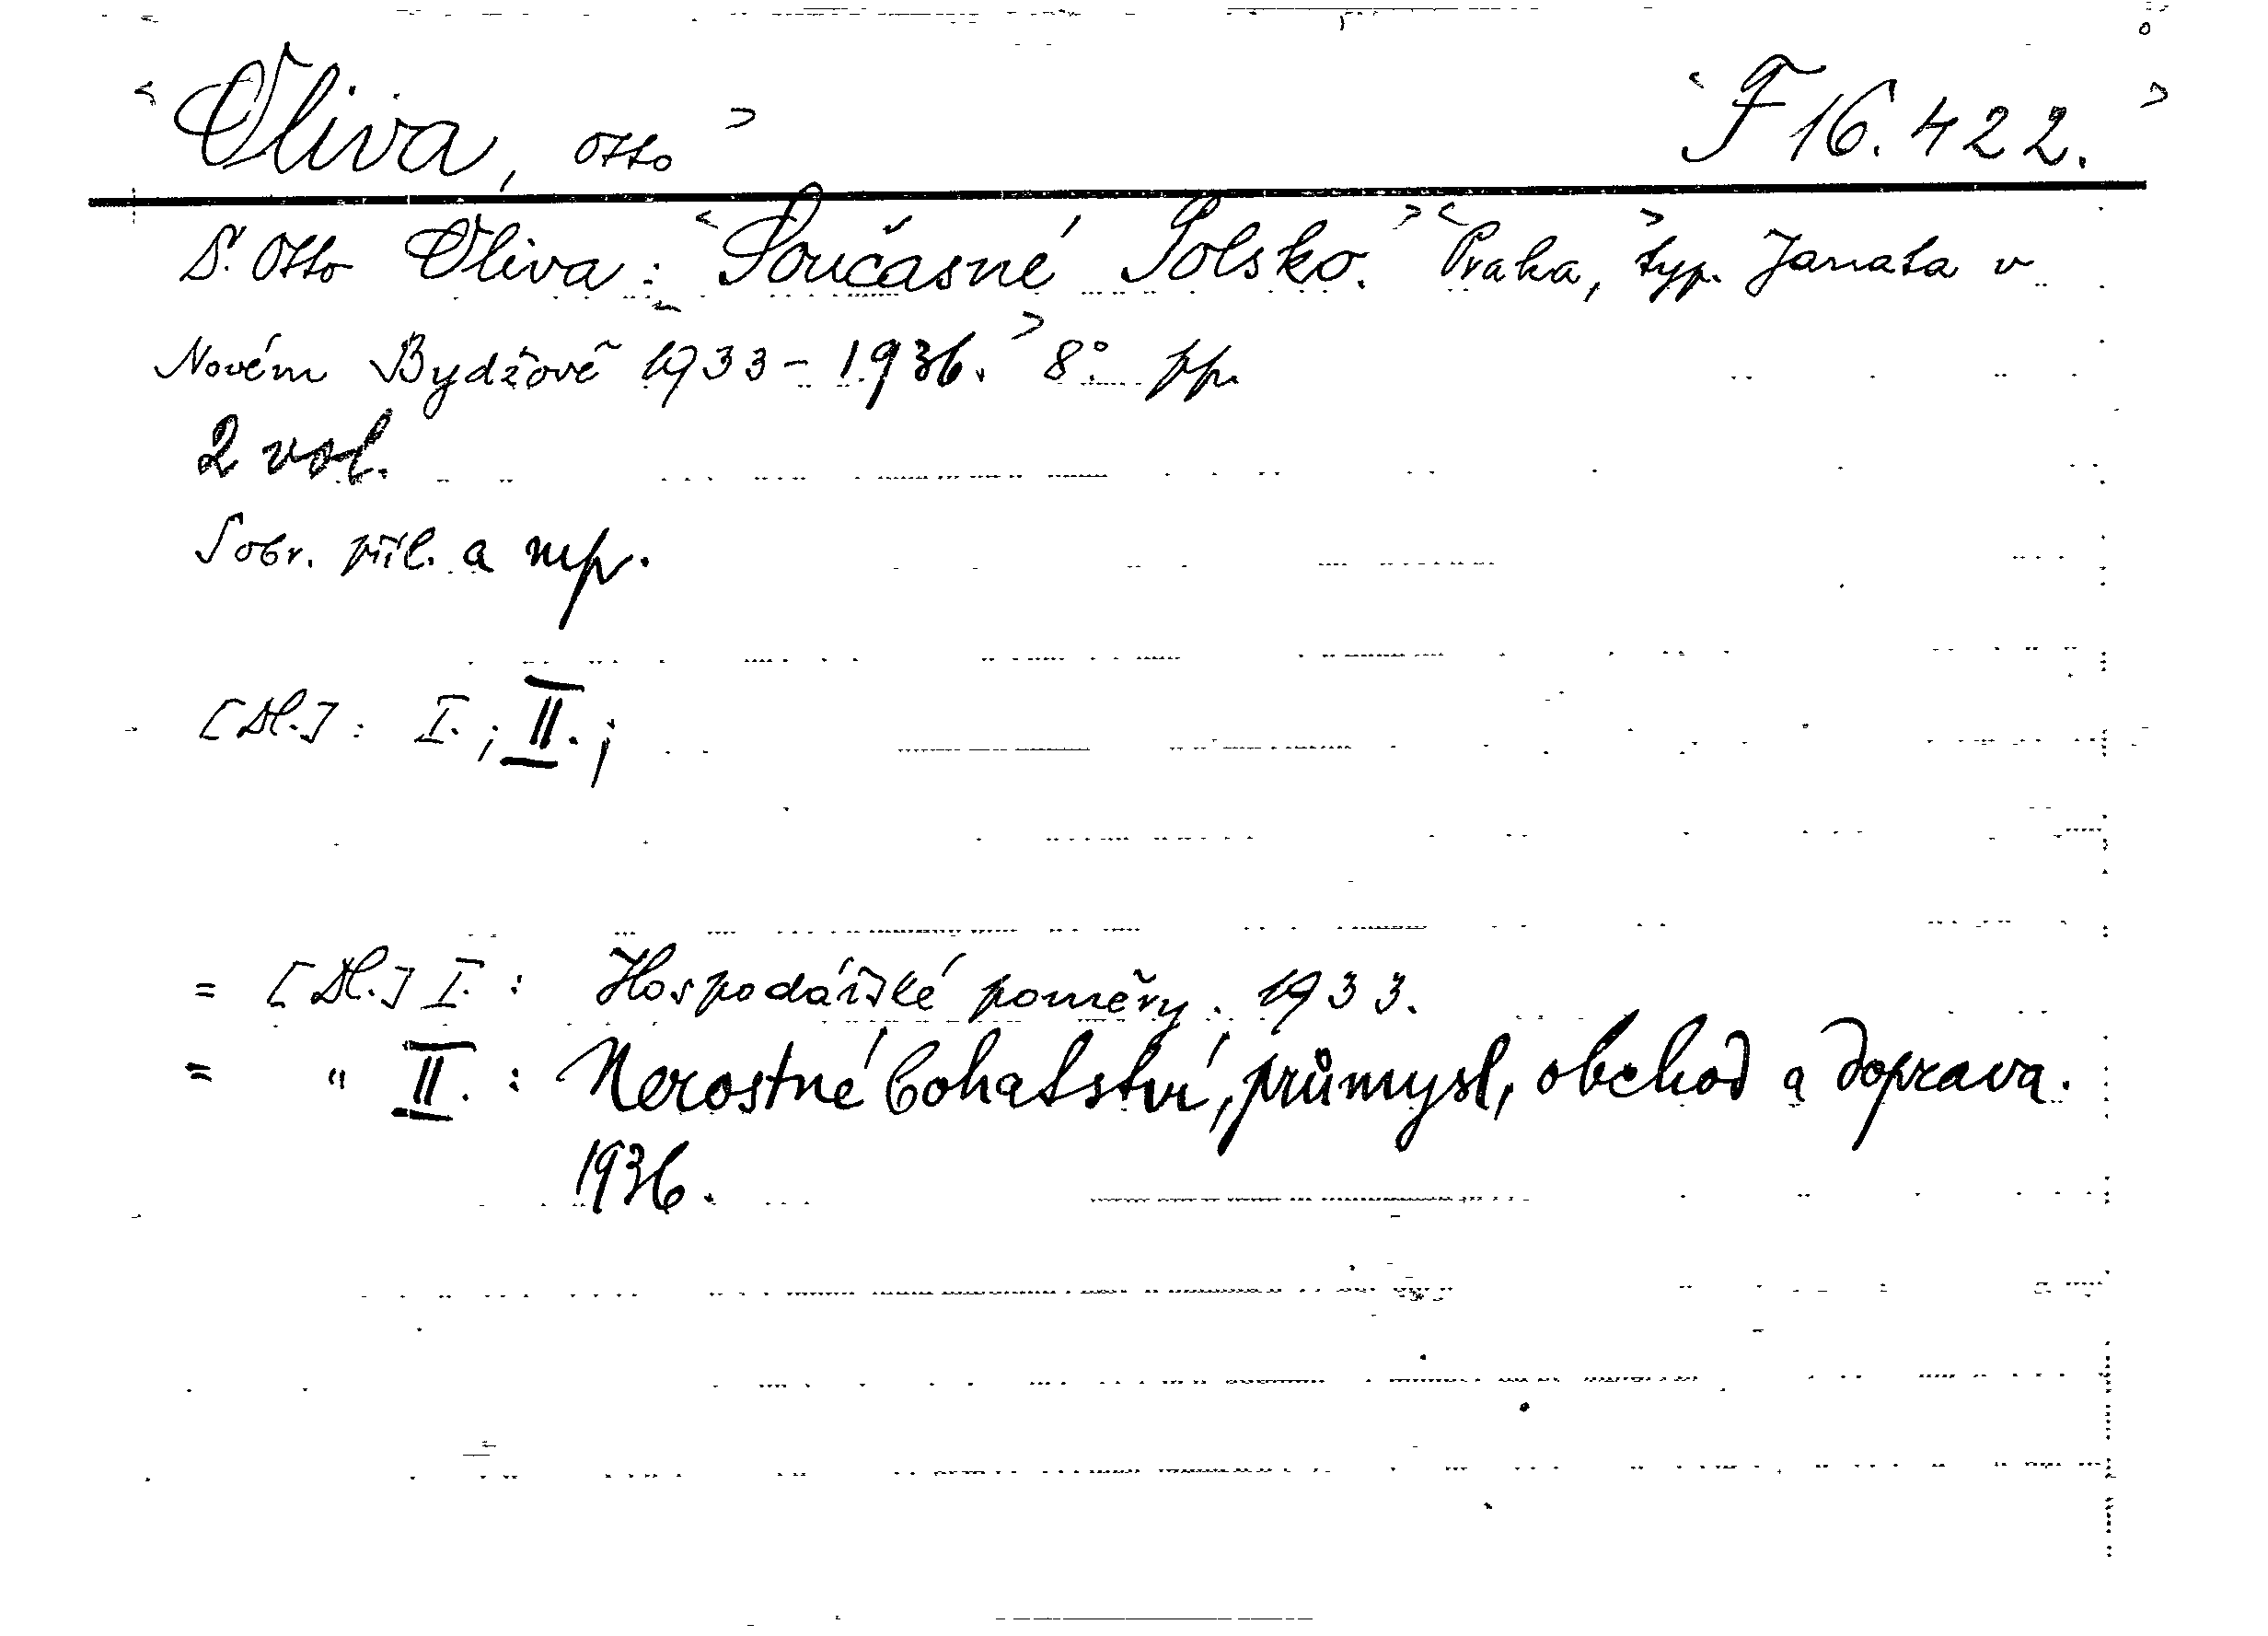 <Oliva, Otto> <F 16.422.>
D. Otto Oliva: <Současné Polsko.> <Praha,> typ. Janata v
Novém Bydžově 1933-1936.> 8° pp.
2 vol.
S obr. příl. a mp.
[Dl.]: I.; II.;
= [Dl.] I.: Hospodářské poměry. 1933.
= " II.: Nerostné bohatství, průmysl, obchod a doprava.
1936.